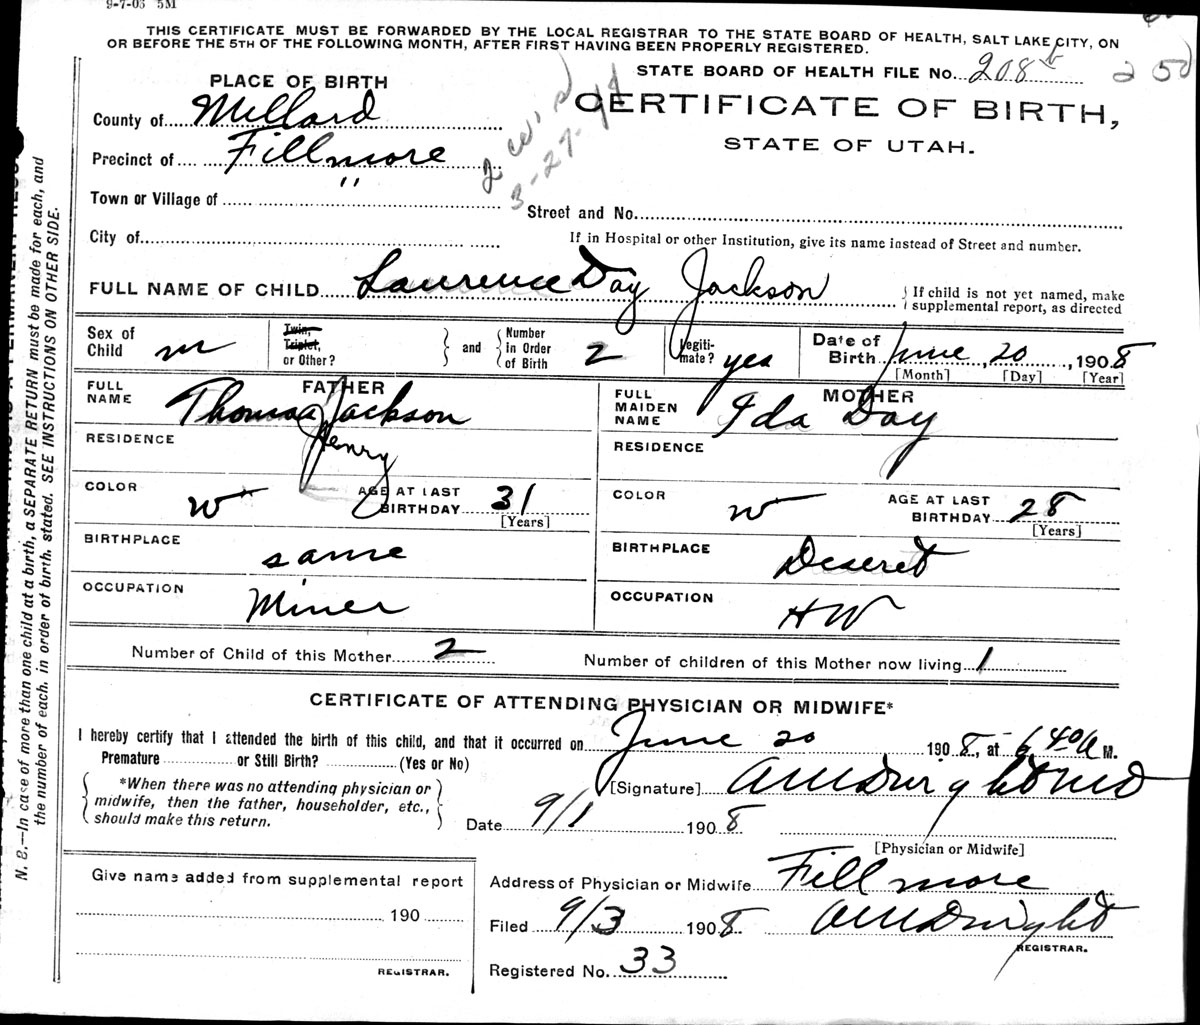 9-7-05 5M
THIS CERTIFICATE MUST BE FORWARDED BY THE LOCAL REGISTRAR TO THE STATE BOARD OF HEALTH, SALT LAKE CITY, ON
OR BEFORE THE 5TH OF THE FOLLOWING MONTH, AFTER FIRST HAVING BEEN PROPERLY REGISTERED.
STATE BOARD OF HEALTH FILE No. 208 250
PLACE OF BIRTH
CERTIFICATE OF BIRTH,
STATE OF UTAH.
County of Millard
Precinct of Fillmore
3-27-
Town or Village of "
Street and No.
City of
If in Hospital or other Institution, give its name instead of Street and number.
FULL NAME OF CHILD Laurence Day Jackson
If child is not yet named, make
supplemental report, as directed
Sex of Child m
Twin, Triplet, or Other?
and
Number in Order of Birth 2
Legiti-mate? yes
Date of Birth June, 20, 1908
[Month] [Day] [Year]
FATHER
FULL NAME Thomas Jackson
Henry
MOTHER
FULL MAIDEN NAME Ida Day
RESIDENCE
RESIDENCE
COLOR W
AGE AT LAST BIRTHDAY 31
[Years]
COLOR W
AGE AT LAST BIRTHDAY 28
[Years]
BIRTHPLACE same
BIRTHPLACE Deseret
OCCUPATION Miner
OCCUPATION HW
Number of Child of this Mother 2
Number of children of this Mother now living 1
CERTIFICATE OF ATTENDING PHYSICIAN OR MIDWIFE*
I hereby certify that I attended the birth of this child, and that it occurred on June 20 1908, at 6 40 a M.
Premature or Still Birth? (Yes or No)
*When there was no attending physician or
midwife, then the father, householder, etc.,
should make this return.
[Signature] AMDwight MD
Date 9/1 1908
[Physician or Midwife]
Give name added from supplemental report
190
REGISTRAR.
Address of Physician or Midwife Fillmore
Filed 9/3 1908 AMDwight
REGISTRAR.
Registered No. 33
N. B.—In case of more than one child at a birth, a SEPARATE RETURN must be made for each, and
the number of each, in order of birth, stated. SEE INSTRUCTIONS ON OTHER SIDE.